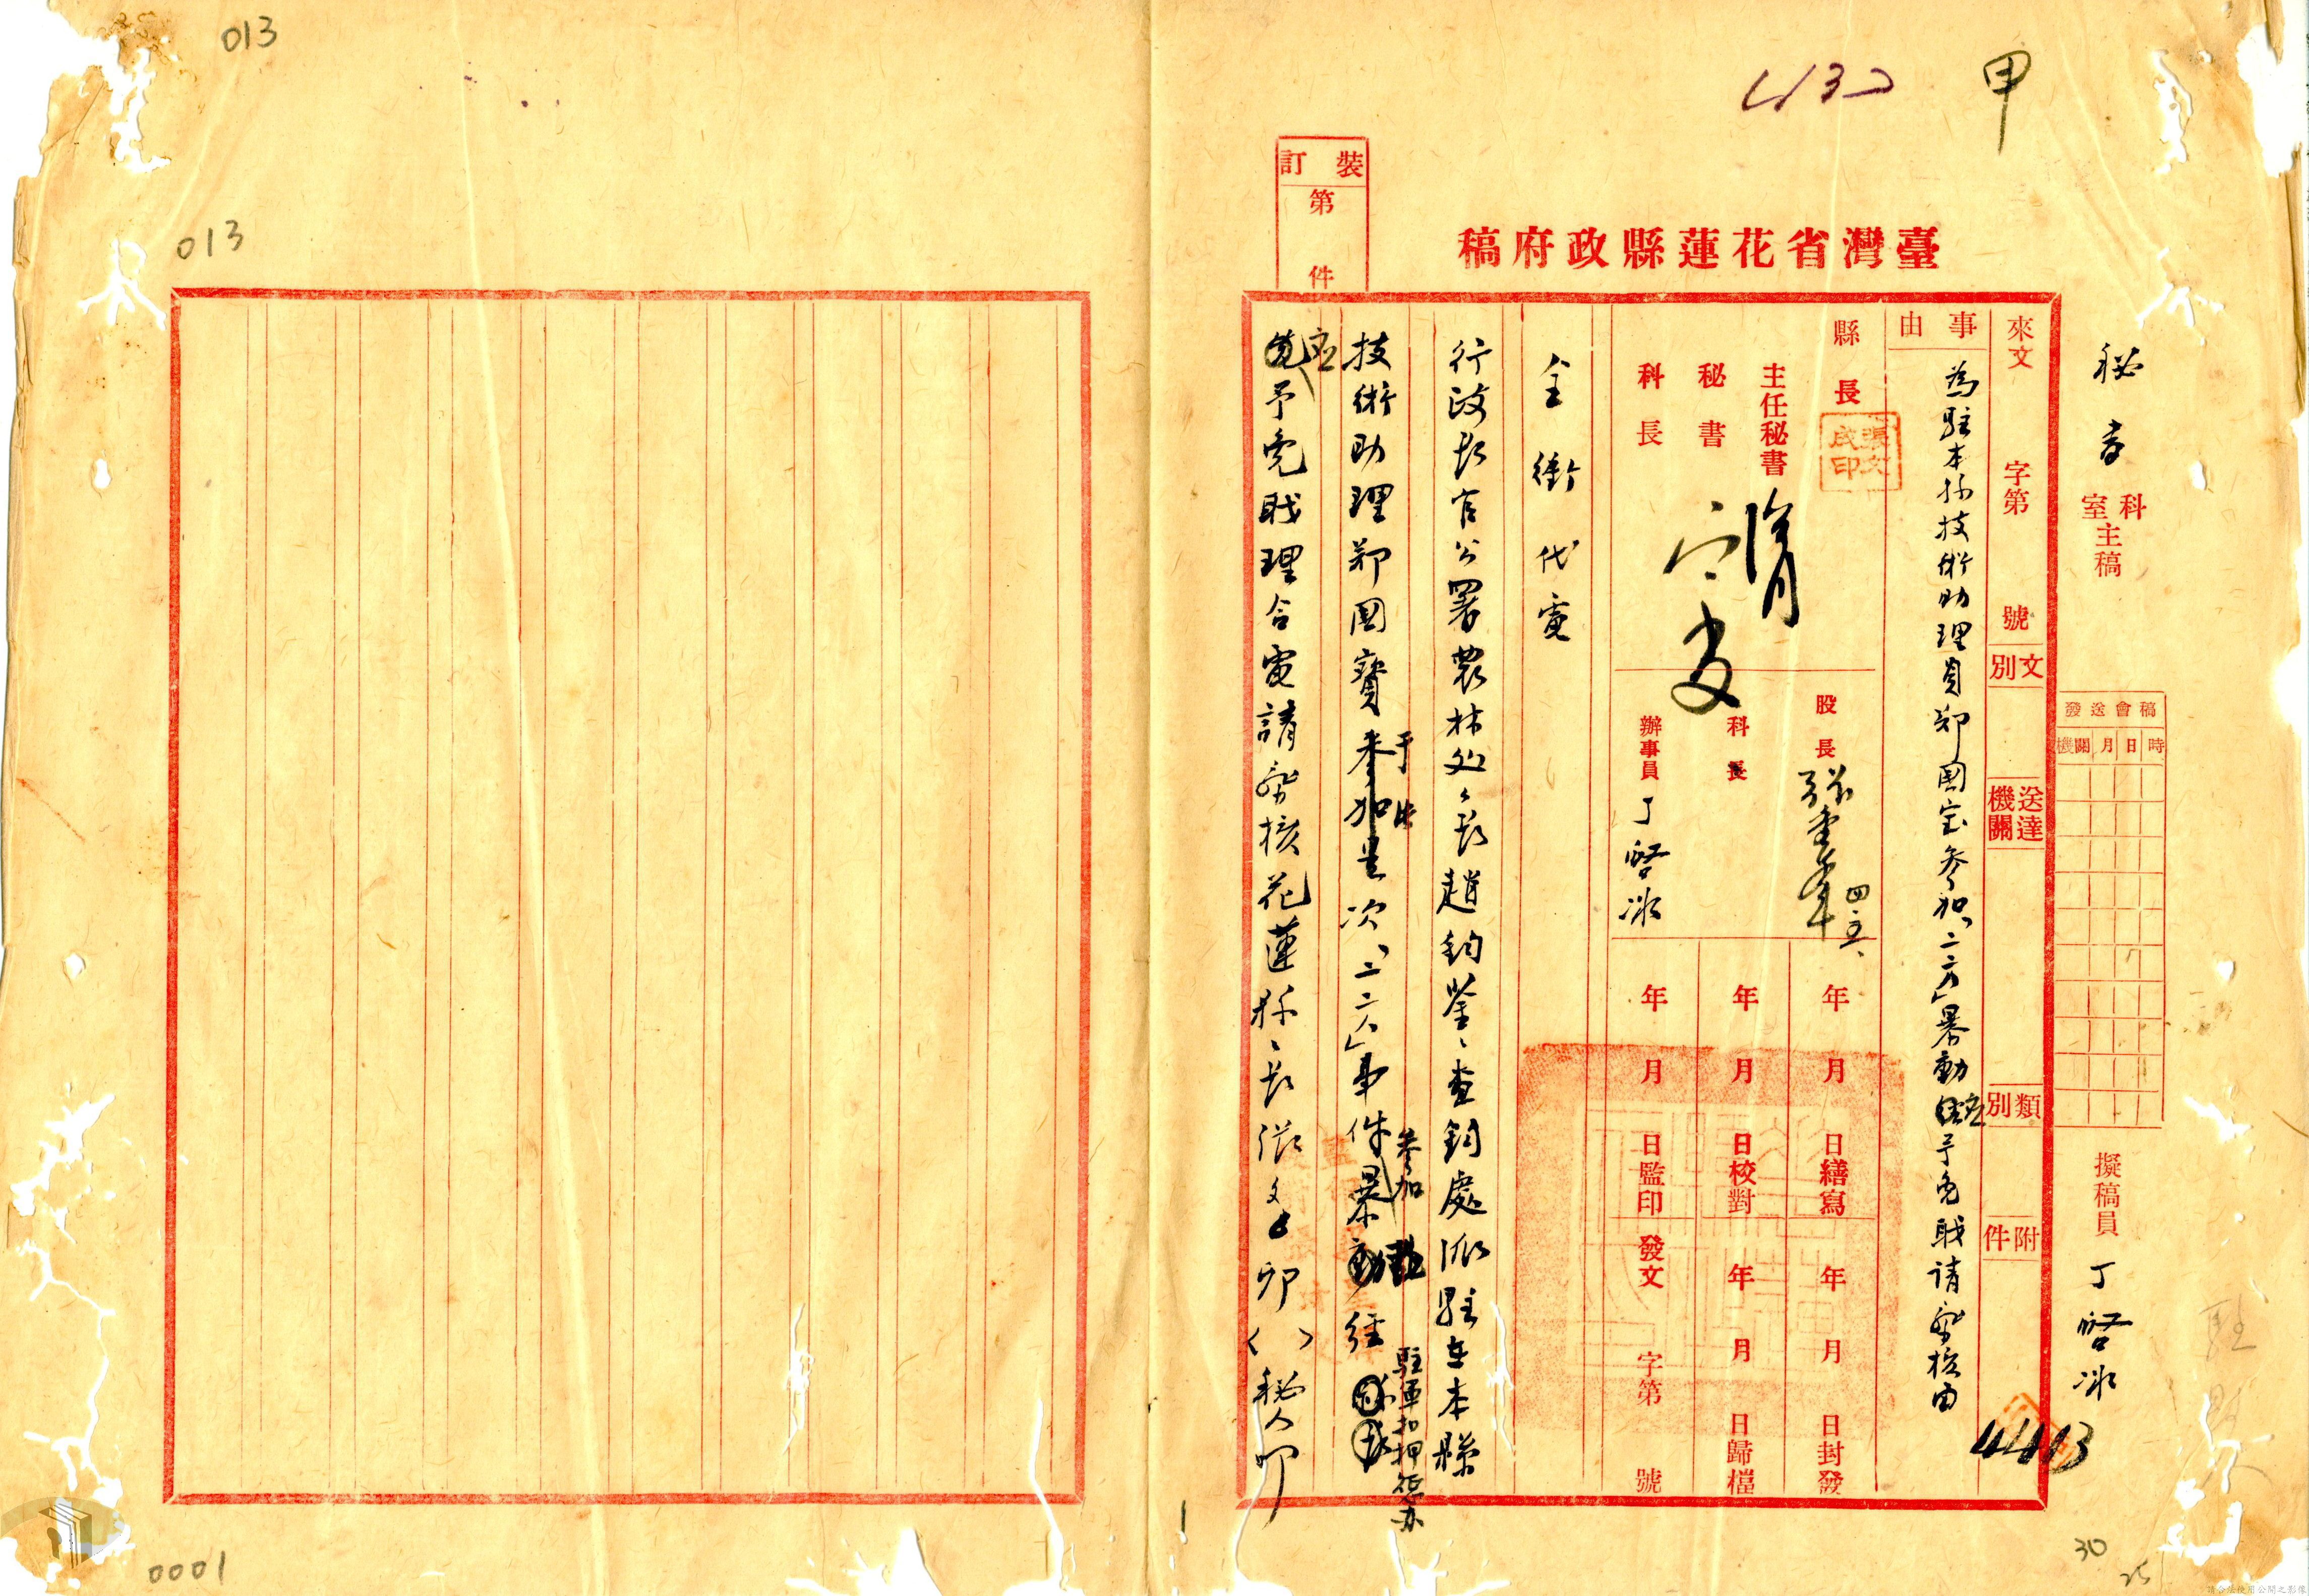 013
013
甲
裝訂
第
件
臺灣省花蓮縣政府稿
秘書
科室主稿
擬稿員 丁啓冰
發送會稿
機關 月 日 時
來文 字第 號
文別
送達機關
類別
附件
4413
事由
為駐本縣技術助理員鄭國宝參加「二二六」暴動應予免职请察核由
縣長
張文成印
主任秘書
秘書
科長
股長
四、五、
科長
辦事員 丁啓冰
年 月 日繕寫
年 月 日校對
年 月 日監印
年 月 日封發
年 月 日歸檔
發文 字第 號
全銜代電
行政長官公署農林处、長趙鈞鑒、查鈞處派駐在本縣
技術助理鄭國寶于此次「二二六」事件參加暴動經駐軍扣押征办
應予免职理合電請察核花蓮縣、長張文成卯（ ）秘人印
0001
30
25